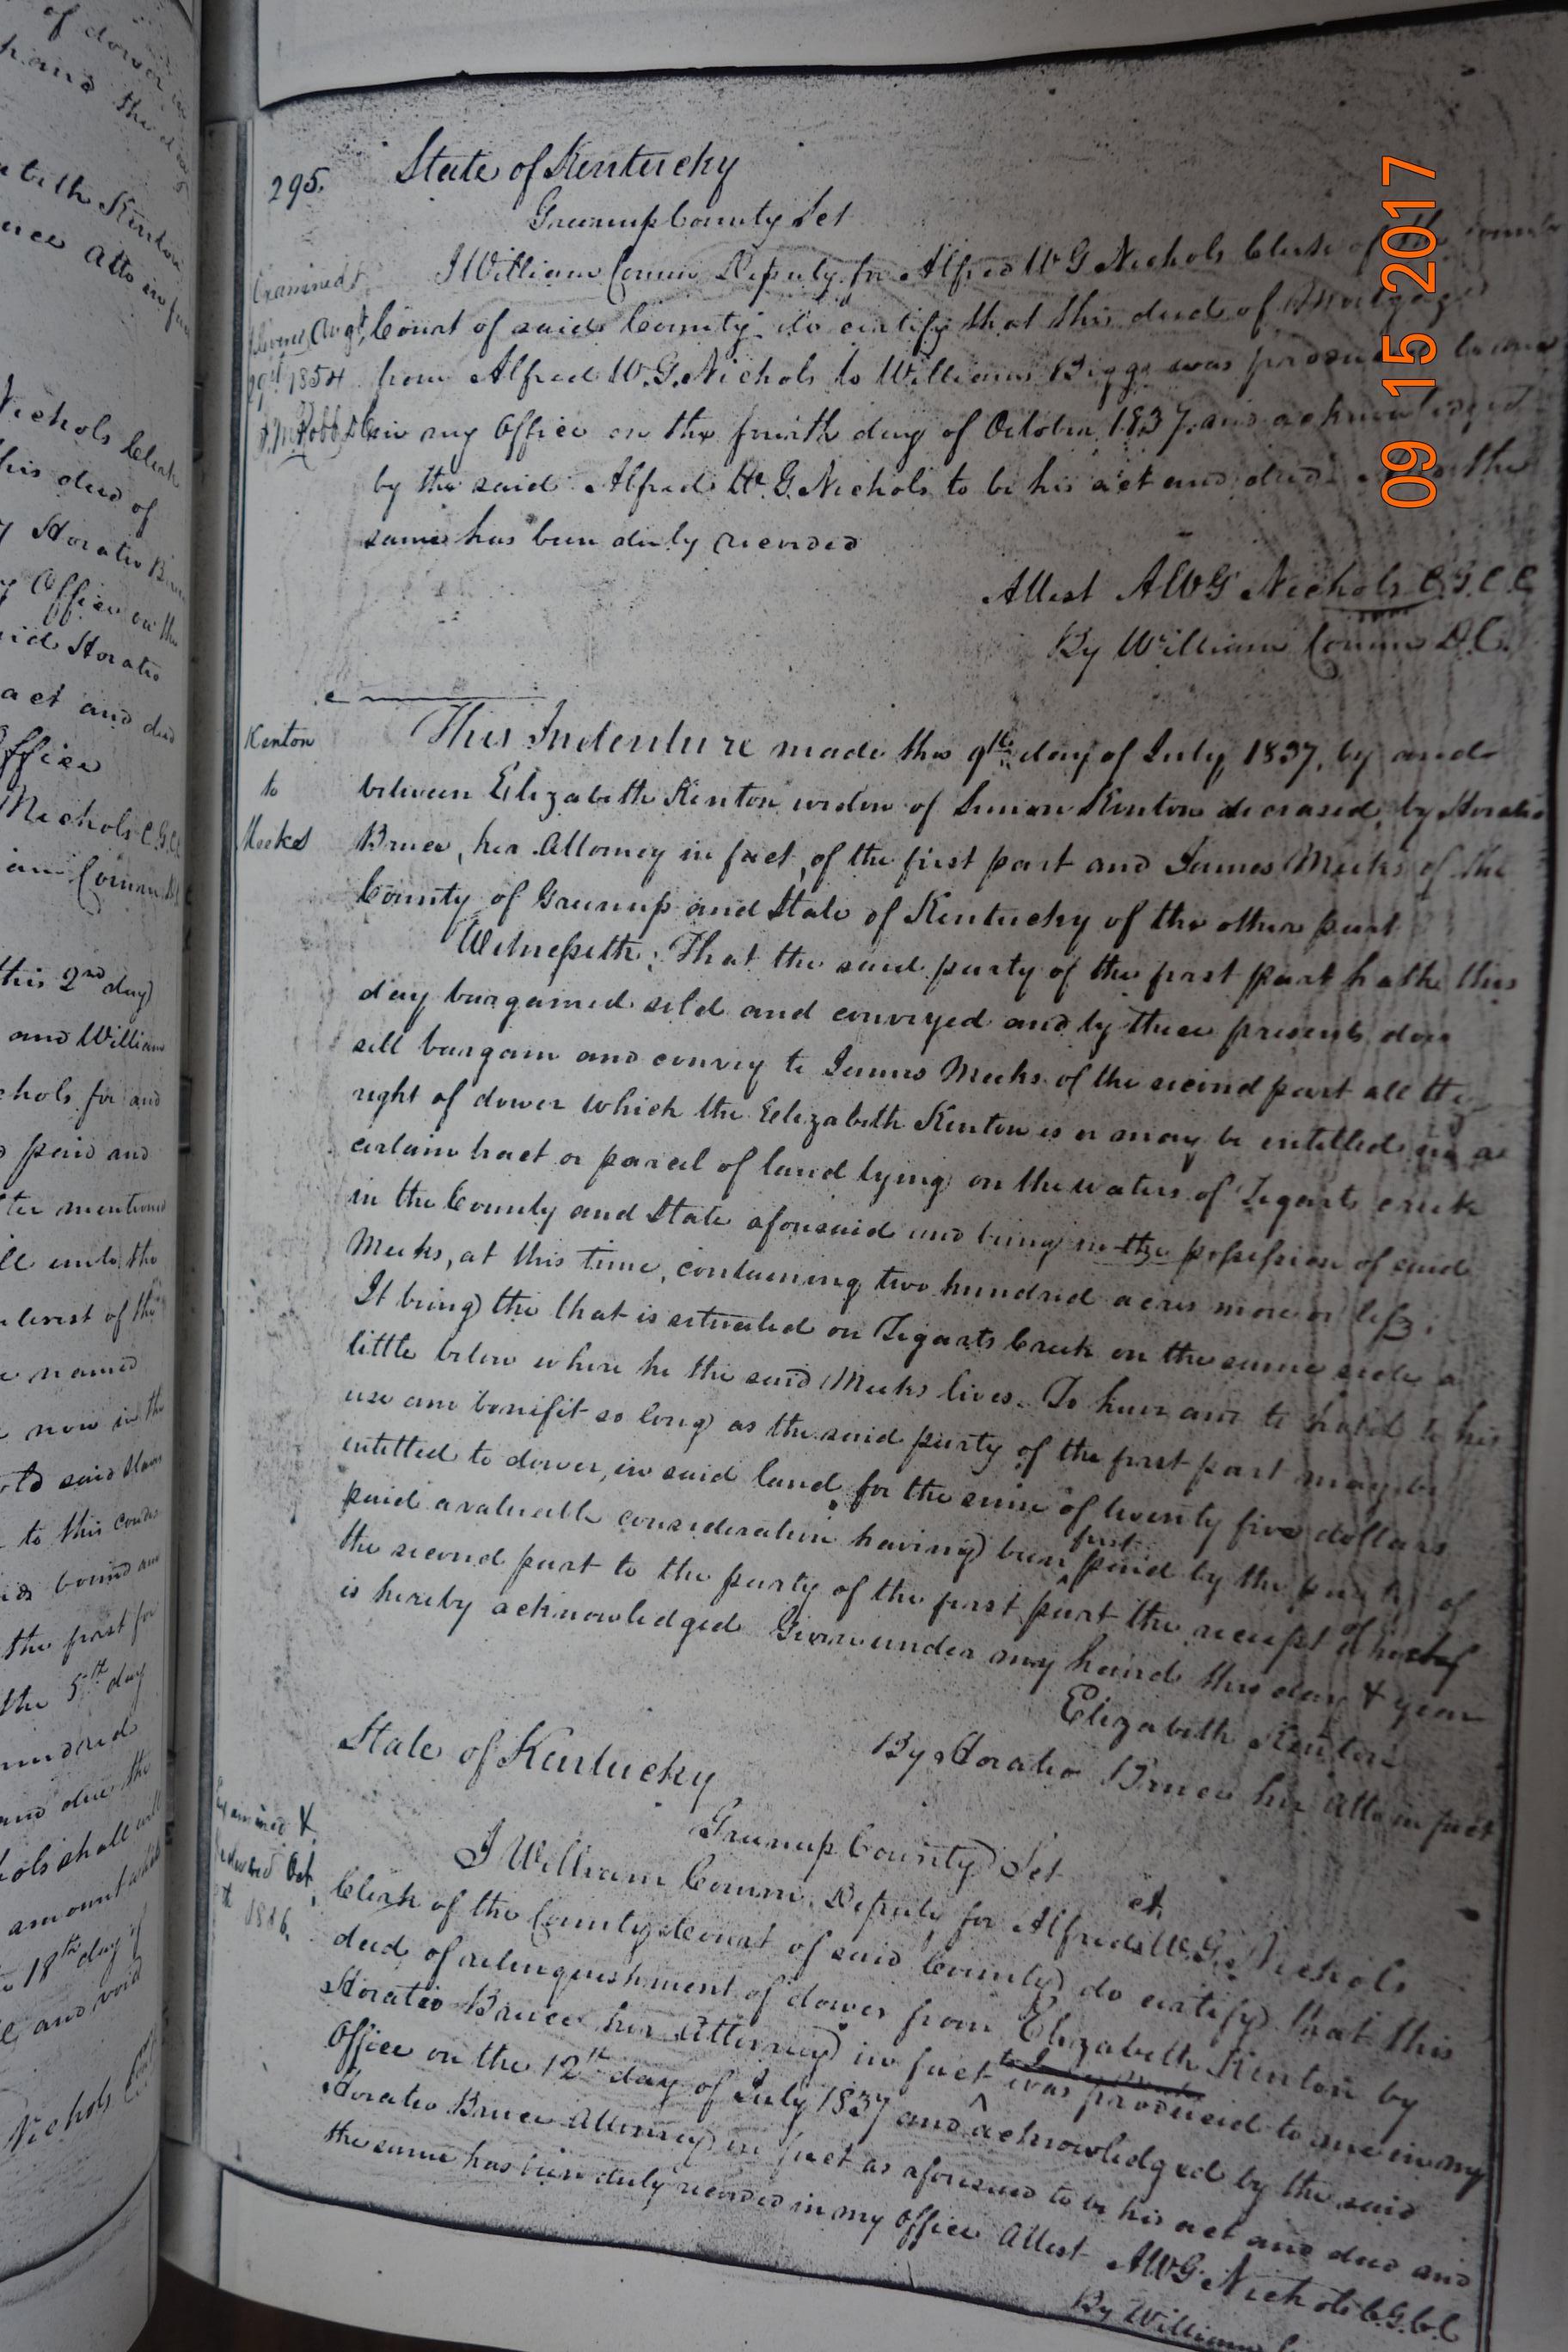 of dower in
hand the d
abeth Kenton
uce Atto in fac
Nichols Clerk
his deed of
y Horatio Bru
y Office on the
aid Horatio
act and deed
Office
Nichols C.G.C.
iam Conner D
this 2nd day
and William
chols for and
paid and
ter mentioned
ll unto the
nterest of the
e named
now in the
to this
bound and
the first for
the 5th day
hundred
and due the
hols shall
amount
18th day of
l and void
Nichols
295.
State of Kentucky
Greenup County Sct
Examined &
Augt
29th 1854
I William Conner Deputy for Alfred W G Nichols Clerk of the County
Court of said County do certify that this deed of Mortgage
from Alfred W. G. Nichols to William Biggs was produced to me
in my Office on the fourth day of October 1837. and acknowledged
by the said Alfred W. G. Nichols to be his act and deed and the
same has been duly recorded
Attest AWG Nichols C.G.C.C
By William Conner D.C.
Kenton
to
Meeks
This Indenture made this 9th day of July, 1837, by and
between Elizabeth Kenton widow of Simon Kenton deceased, by Horatio
Bruce, her Attorney in fact, of the first part and James Meeks of the
County of Greenup and State of Kentucky of the other part
Witnesseth; That the said party of the first part hath this
day bargained sold and conveyed and by these presents does
sell bargain and convey to James Meeks of the second part all the
right of dower which the Elizabeth Kenton is or may be intitled in a
certain tract or parcel of land lying on the waters of Tygarts creek
in the County and State aforesaid and being in the possession of said
Meeks, at this time, containing two hundred acres more or less.
It being the that is situated on Tygarts Creek on the same side a
little below where he the said Meeks lives. To have and to hold to his
use and benifit so long as the said party of the first part may be
intitled to dower, in said land for the sum of twenty five dollars
paid a valuable consideration having been first paid by the party of
the second part to the party of the first part the receipt whereof
is hereby acknowledged Given under my hand this day & year
Elizabeth Kenton
By Horatio Bruce her Atto in fact
State of Kentucky
Greenup County Sct
Examined &
Delivered Oct
1846.
I William Conner, Deputy for Alfred W. G. Nichols
Clerk of the County Court of said County do certify that this
deed of relinquishment of dower from Elizabeth Kenton by
Horatio Bruce her Attorney in fact was produced to me in my
Office on the 12th day of July 1837 and acknowledged by the said
Horatio Bruce Attorney in fact as aforesaid to be his act and deed and
the same has been duly recorded in my Office Attest AWG Nichols C.G.C.C
By William
09 15 2017